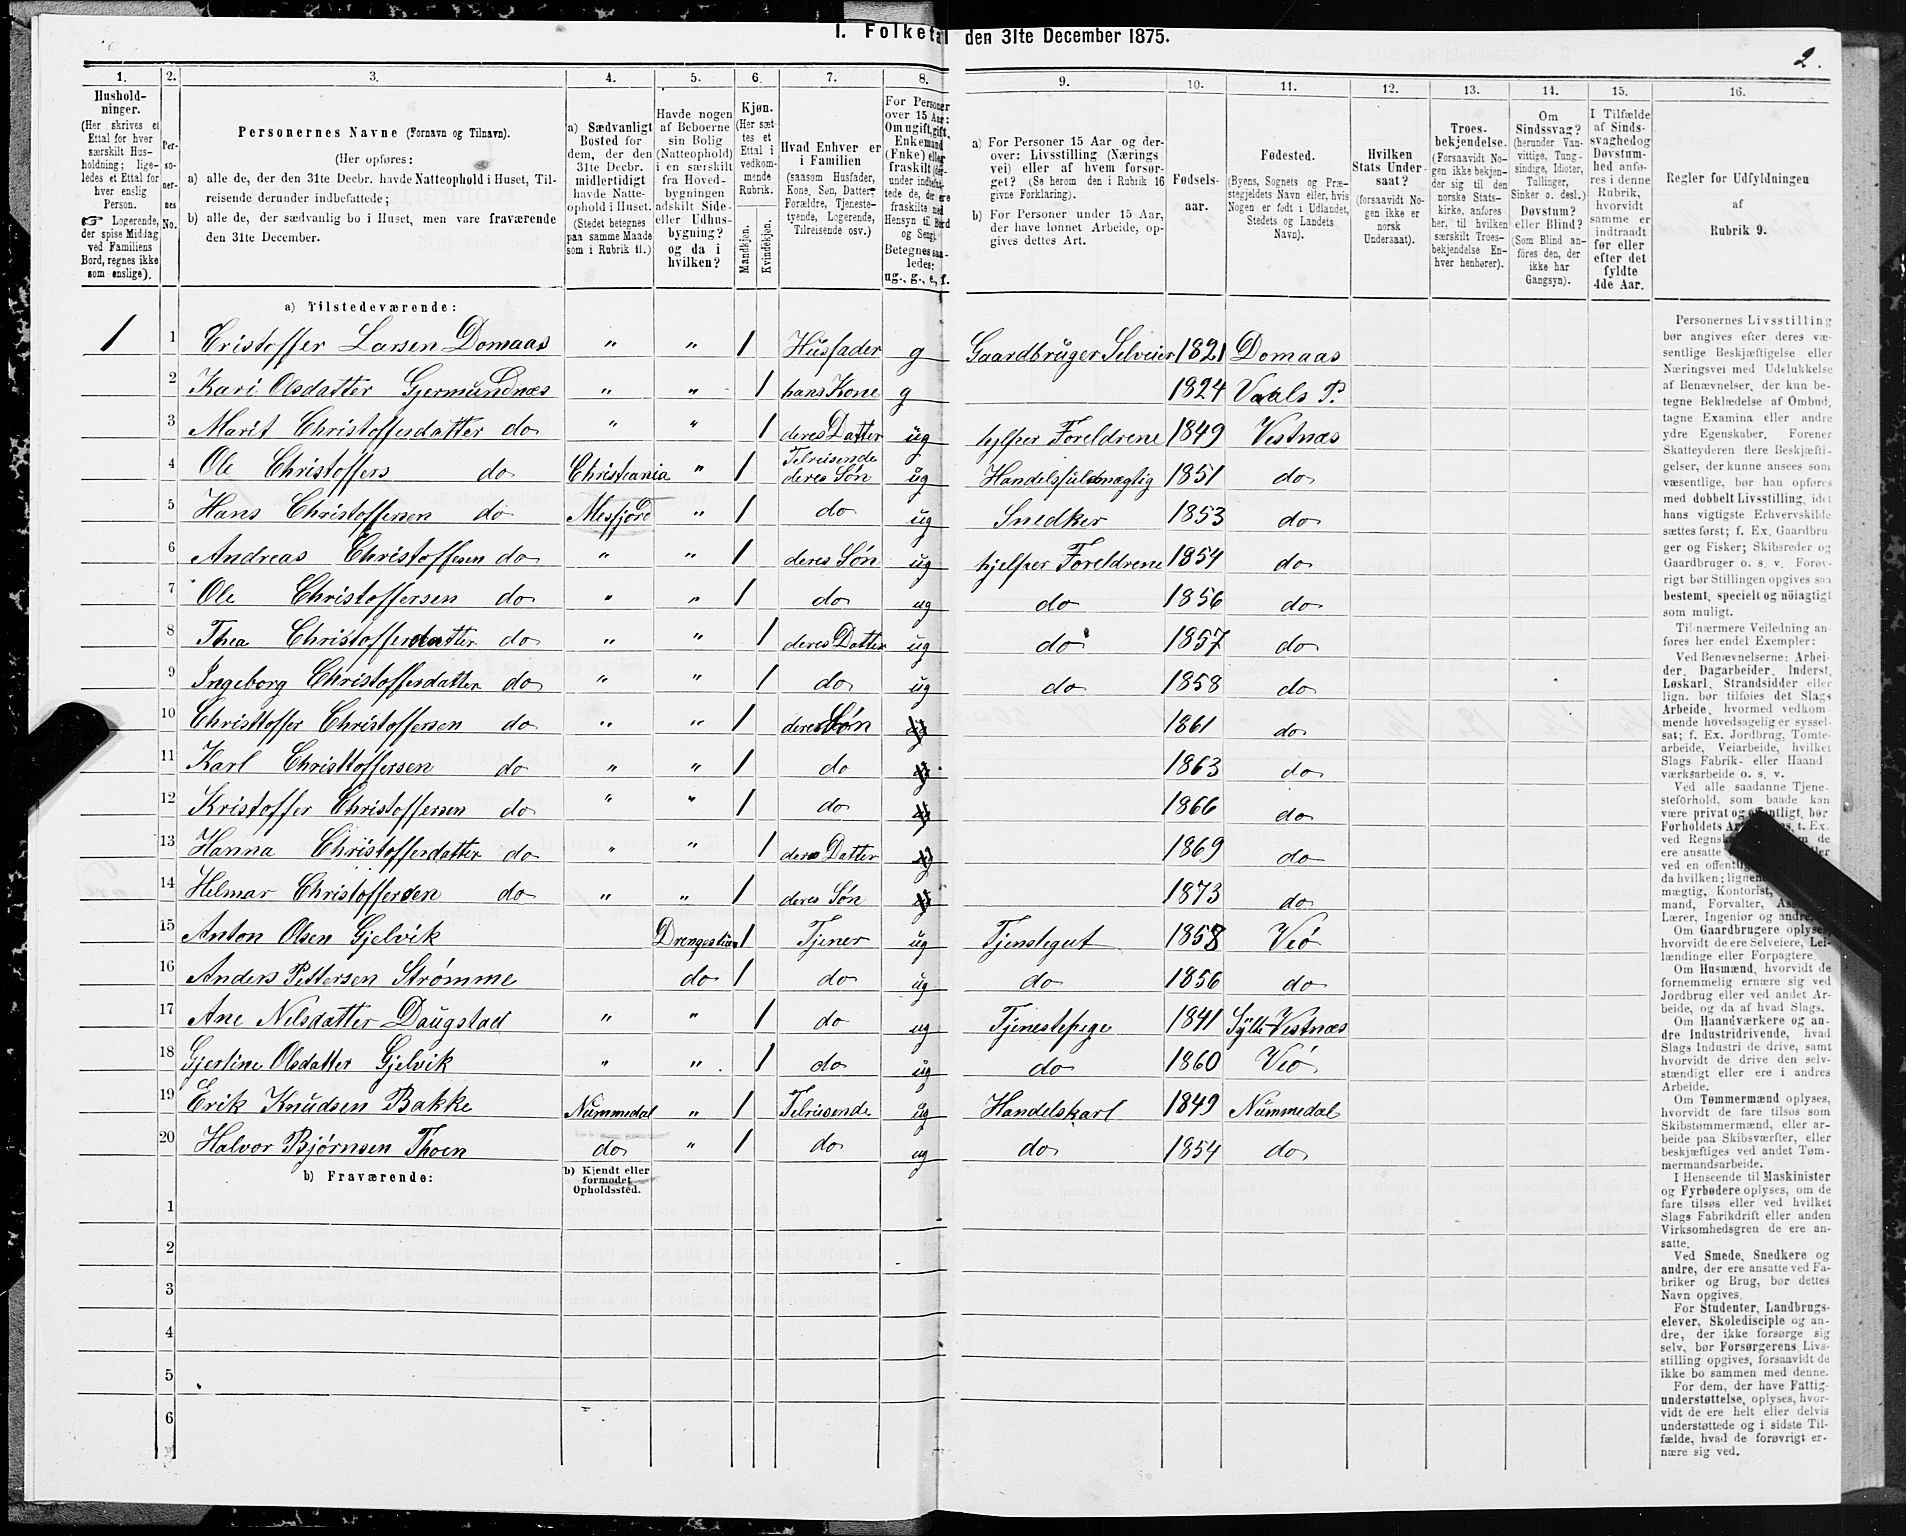 I. Folketal den 31te December 1875.
2.
1. 2. 3. 4. 5. 6. 7. 8. 9. 10. 11. 12. 13. 14. 15. 16.
Husholdninger.
(Her skrives et
Ettal for hver
særskilt Husholdning; ligeledes et Ettal for
hver enslig
Person.
☞ Logerende,
der spise Middag
ved Familiens
Bord, regnes ikke
som enslige).
Personernes No.
Personernes Navne (Fornavn og Tilnavn).
(Her opføres:
a) alle de, der den 31te Decbr. havde Natteophold i Huset, Tilreisende derunder indbefattede;
b) alle de, der sædvanlig bo i Huset, men vare fraværende
den 31te December.
a) Sædvanligt
Bosted for
dem, der den
31te Decbr.
midlertidigt
havde Natteophold i Huset.
(Stedet betegnes
paa samme Maade
som i Rubrik 11.)
Havde nogen
af Beboerne
sin Bolig
(Natteophold)
i en særskilt
fra Hovedbygningen
adskilt Side- eller Udhusbygning?
og da i
hvilken?
Kjøn.
(Her sættes et
Ettal i
vedkommende
Rubrik.
Mandkjøn.
Kvindekjøn.
Hvad Enhver er
i Familien
(saasom Husfader,
Kone, Søn, Datter,
Forældre, Tjenestetyende, Logerende,
Tilreisende osv.)
For Personer
over 15 Aar:
Om ugift, gift,
Enkemand
(Enke) eller
fraskilt
Betegnes saaledes:
ug., g., e., f.
a) For Personer 15 Aar og derover: Livsstilling (Næringsvei) eller af hvem forsørget? (Se herom den i Rubrik 16
givne Forklaring).
b) For Personer under 15 Aar,
der have lønnet Arbeide, opgives dettes Art.
Fødselsaar.
Fødested.
(Byens, Sognets og Præstegjeldets Navn eller, hvis
Nogen er født i Udlandet,
Stedets og Landets
Navn).
Hvilken
Stats Undersaat?
(forsaavidt Nogen ikke er
norsk
Undersaat).
Troesbekjendelse.
(Forsaavidt Nogen ikke bekjender sig til den
norske Statskirke, anføres
her, til hvilken
særskilt Troesbekjendelse Enhver henhører).
Om
Sindssvag?
(herunder Vanvittige, Tungsindige, Idioter,
Tullinger,
Sinker o. desl.)
Døvstum?
eller Blind?
(Som Blind anføres den, der
ikke har
Gangsyn).
I Tilfælde
af Sindssvaghed og
Døvstumhed anføres i denne
Rubrik,
hvorvidt
samme er
indtraadt
før eller
efter det
fyldte
4de Aar.
Regler for Udfyldningen
af
Rubrik 9.
a) Tilstedeværende:
1 1 Cristoffer Larsen Domaas " " 1 Husfader g Gaardbruger Selveier 1821 Domaas
2 Kari Olsdatter Gjermundnæs " " 1 hans Kone g 1824 Vaals P.
3 Marit Christoffersdatter do " " 1 deres Datter ug hjelper Foreldrene 1849 Vestnæs
4 Ole Christoffers do Christeania " 1 Tilreisende deres Søn ug Handelsfuldmægtig 1851 do
5 Hans Christoffersen do Mesfjord " 1 do ug Snedker 1853 do
6 Andreas Christoffersen do " " 1 deres Søn ug hjelper Foreldrene 1854 do
7 Ole Christoffersen do " " 1 do ug do 1856 do
8 Thea Christoffersdatter do " " 1 deres Datter ug do 1857 do
9 Ingeborg Christoffersdatter do " " 1 do ug do 1858 do
10 Christtoffer Christoffersen do " " 1 deres Søn ug 1861 do
11 Karl Christtoffersen do " " 1 do ug 1863 do
12 Kristoffer Christoffersen do " " 1 do ug 1866 do
13 Hanna Christoffersdatter do " " 1 deres Datter ug 1869 do
14 Helmar Christoffersen do " " 1 deres Søn ug 1873 do
15 Anton Olsen Gjelvik 1 Tjener ug Tjenstegut 1858 Veö
16 Anders Pettersen Strømme do 1 do ug do 1856 do
17 Ane Nilsdatter Daugstad " " 1 do ug Tjenestepige 1841 Sylte Vestnæs
18 Gjertine Olsdatter Gjelvik " " 1 do ug do 1860 Veö
19 Erik Knudsen Bakke Nummedal " 1 Tilreisende ug Handelskarl 1849 Nummedal
20 Halvor Bjørnsen Thoen do " 1 do ug do 1854 do
b) Fraværende:
b) Kjendt eller
formodet
Opholdssted.
1
2
3
4
5
6
Personernes Livsstilling
bør angives efter deres væsentlige Beskjæftigelse eller
Næringsvei med Udelukkelse
af Benævnelser, der kun betegne Beklædelse af Ombud,
tagne Examina eller andre
ydre Egenskaber. Forener
Skatteyderen flere Beskjæftigelser, der kunne ansees som
væsentlige, bør han opføres
med dobbelt Livsstilling, idet
hans vigtigste Erhvervskilde
sættes først; f. Ex. Gaardbruger og Fisker; Skibsreder og
Gaardbruger o. s. v. Forøvrigt bør Stillingen opgives saa
bestemt, specielt og nöiagtigt
som muligt.
Til nærmere Veiledning anføres her endel Exempler:
Ved Benævnelserne: Arbeider, Dagarbeider, Inderst,
Løskarl, Strandsidder eller
lign. bør tilføies det Slags
Arbeide, hvormed vedkommende hovedsagelig er sysselsat; f. Ex. Jordbrug, Tomtearbeide, Veiarbeide, hvilket
Slags Fabrik- eller Haandværksarbeide o. s. v.
Ved alle saadanne Tjenesteforhold, som baade kan
være privat og offentligt, bør
Forholdets
da hvilken;
mægtig, Kontorist,
mand, Forvalter,
Lærer, Ingeniør og andre
Om Gaardbrugere oplyses,
hvorvidt de ere Selveiere, Leilændinge eller Forpagtere.
Om Husmænd, hvorvidt de
fornemmelig ernære sig ved
Jordbrug eller ved andet Arbeide, og da af hvad Slags.
Om Haandværkere og andre Industridrivende, hvad
Slags Industri de drive, samt
hvorvidt de drive den selvstændigt eller ere i andres
Arbeide.
Om Tømmermænd oplyses,
hvorvidt de fare tilsøs som
Skibstømmermænd, eller arbeide paa Skibsværfter, eller
beskjæftiges ved andet Tømmermandsarbeide.
I Henseende til Maskinister
og Fyrbødere oplyses, om de
fare tilsøs eller ved hvilket
Slags Fabrikdrift eller anden
Virksomhedsgren de ere ansatte.
Ved Smede, Snedkere og
andre, der ere ansatte ved Fabriker og Brug, bør dettes
Navn opgives.
For Studenter, Landbrugselever, Skoledisciple og andre, der ikke forsørge sig
selv, bør Forsørgerens Livsstilling opgives, forsaavidt de
ikke bo sammen med denne.
For dem, der have Fattigunderstøttelse, oplyses, hvorvidt de ere helt eller delvis
understøttede og i sidste Tilfælde, hvad de forøvrigt ernære sig ved.